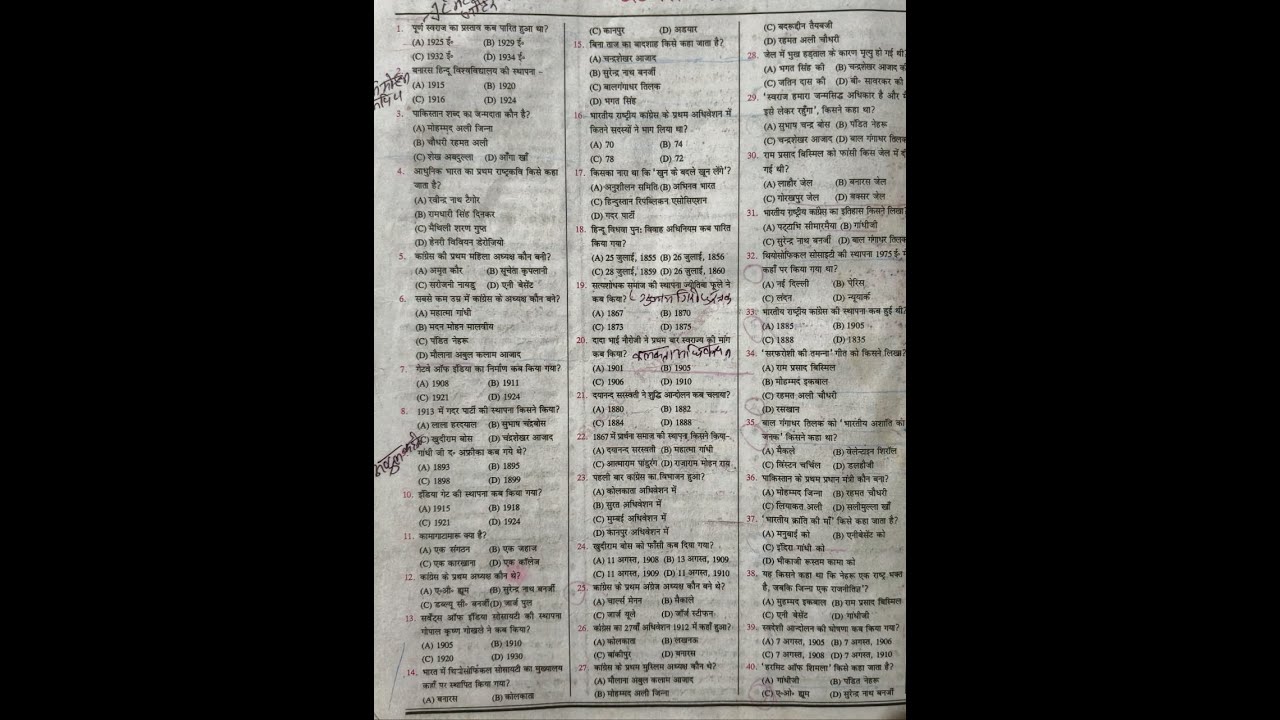 1. पूर्ण स्वराज का प्रस्ताव कब पारित हुआ था?
(A) 1925 ई॰ (B) 1929 ई॰
(C) 1932 ई॰ (D) 1934 ई॰
2. बनारस हिन्दू विश्वविद्यालय की स्थापना -
(A) 1915 (B) 1920
(C) 1916 (D) 1924
3. पाकिस्तान शब्द का जन्मदाता कौन है?
(A) मोहम्मद अली जिन्ना
(B) चौधरी रहमत अली
(C) शेख अबदुल्ला (D) आँगा खाँ
4. आधुनिक भारत का प्रथम राष्ट्रकवि किसे कहा
जाता है?
(A) रवीन्द्र नाथ टैगोर
(B) रामधारी सिंह दिनकर
(C) मैथिली शरण गुप्त
(D) हेनरी विवियन डेरोजियो
5. कांग्रेस की प्रथम महिला अध्यक्ष कौन बनी?
(A) अमृत कौर (B) सूचेता कृपलानी
(C) सरोजनी नायडू (D) एनी बेसेंट
6. सबसे कम उम्र में कांग्रेस के अध्यक्ष कौन बने?
(A) महात्मा गांधी
(B) मदन मोहन मालवीय
(C) पंडित नेहरू
(D) मौलाना अबुल कलाम आजाद
7. गेटवे ऑफ इंडिया का निर्माण कब किया गया?
(A) 1908 (B) 1911
(C) 1921 (D) 1924
8. 1913 में गदर पार्टी की स्थापना किसने किया?
(A) लाला हरदयाल (B) सुभाष चंद्रबोस
(C) खुदीराम बोस (D) चंद्रशेखर आजाद
गांधी जी द॰ अफ्रीका कब गये थे?
(A) 1893 (B) 1895
(C) 1898 (D) 1899
10. इंडिया गेट की स्थापना कब किया गया?
(A) 1915 (B) 1918
(C) 1921 (D) 1924
11. कामागाटामारू क्या है?
(A) एक संगठन (B) एक जहाज
(C) एक कारखाना (D) एक कॉलेज
12. कांग्रेस के प्रथम अध्यक्ष कौन थे?
(A) ए॰ओ॰ ह्यूम (B) सुरेन्द्र नाथ बनर्जी
(C) डब्ल्यू सी॰ बनर्जी (D) जार्ज पुल
13. सर्वेंट्स ऑफ इंडिया सोसायटी की स्थापना
गोपाल कृष्ण गोखले ने कब किया?
(A) 1905 (B) 1910
(C) 1920 (D) 1930
14. भारत में थियोसोफिकल सोसायटी का मुख्यालय
कहाँ पर स्थापित किया गया?
(A) बनारस (B) कोलकाता
(C) कानपुर (D) अडयार
15. बिना ताज का बादशाह किसे कहा जाता है?
(A) चन्द्रशेखर आजाद
(B) सुरेन्द्र नाथ बनर्जी
(C) बालगंगाधर तिलक
(D) भगत सिंह
16. भारतीय राष्ट्रीय कांग्रेस के प्रथम अधिवेशन में
कितने सदस्यों ने भाग लिया था?
(A) 70 (B) 74
(C) 78 (D) 72
17. किसका नारा था कि 'खुन के बदले खुन लेंगे'?
(A) अनुशीलन समिति (B) अभिनव भारत
(C) हिन्दुस्तान रिपब्लिकन एसोसिएशन
(D) गदर पार्टी
18. हिन्दू विधवा पुनः विवाह अधिनियम कब पारित
किया गया?
(A) 25 जुलाई, 1855 (B) 26 जुलाई, 1856
(C) 28 जुलाई, 1859 (D) 26 जुलाई, 1860
19. सत्यशोधक समाज की स्थापना ज्योतिबा फूले ने
कब किया?
(A) 1867 (B) 1870
(C) 1873 (D) 1875
20. दादा भाई नौरोजी ने प्रथम बार स्वराज्य की मांग
कब किया?
(A) 1901 (B) 1905
(C) 1906 (D) 1910
21. दयानन्द सरस्वती ने शुद्धि आन्दोलन कब चलाया?
(A) 1880 (B) 1882
(C) 1884 (D) 1888
22. 1867 में प्रार्थना समाज की स्थापना किसने किया-
(A) दयानन्द सरस्वती (B) महात्मा गांधी
(C) आत्माराम पांडुरंग (D) राजाराम मोहन राय
23. पहली बार कांग्रेस का विभाजन हुआ?
(A) कोलकाता अधिवेशन में
(B) सुरत अधिवेशन में
(C) मुम्बई अधिवेशन में
(D) कानपुर अधिवेशन में
24. खुदीराम बोस को फाँसी कब दिया गया?
(A) 11 अगस्त, 1908 (B) 13 अगस्त, 1909
(C) 11 अगस्त, 1909 (D) 11 अगस्त, 1910
25. कांग्रेस के प्रथम अंग्रेज अध्यक्ष कौन बने थे?
(A) चार्ल्स मेनन (B) मैकाले
(C) जार्ज यूले (D) जॉर्ज स्टीफन
26. कांग्रेस का 27वाँ अधिवेशन 1912 में कहाँ हुआ?
(A) कोलकाता (B) लखनऊ
(C) बांकीपुर (D) बनारस
27. कांग्रेस के प्रथम मुस्लिम अध्यक्ष कौन थे?
(A) मौलाना अबुल कलाम आजाद
(B) मोहम्मद अली जिन्ना
(C) बदरूद्दीन तैयबजी
(D) रहमत अली चौधरी
28. जेल में भुख हड़ताल के कारण मृत्यु हो गई थी?
(A) भगत सिंह की (B) चन्द्रशेखर आजाद की
(C) जतिन दास की (D) बी॰ सावरकर की
29. 'स्वराज हमारा जन्मसिद्ध अधिकार है और मैं
इसे लेकर रहूँगा', किसने कहा था?
(A) सुभाष चन्द्र बोस (B) पंडित नेहरू
(C) चन्द्रशेखर आजाद (D) बाल गंगाधर तिलक
30. राम प्रसाद बिस्मिल को फांसी किस जेल में दी
गई थी?
(A) लाहौर जेल (B) बनारस जेल
(C) गोरखपुर जेल (D) बक्सर जेल
31. भारतीय राष्ट्रीय कांग्रेस का इतिहास किसने लिखा?
(A) पट्टाभि सीमारमैया (B) गांधीजी
(C) सुरेन्द्र नाथ बनर्जी (D) बाल गंगाधर तिलक
32. थियोसोफिकल सोसाइटी की स्थापना 1975 ई॰ में
कहाँ पर किया गया था?
(A) नई दिल्ली (B) पेरिस
(C) लंदन (D) न्यूयार्क
33. भारतीय राष्ट्रीय कांग्रेस की स्थापना कब हुई थी?
(A) 1885 (B) 1905
(C) 1888 (D) 1835
34. 'सरफरोशी की तमन्ना' गीत को किसने लिखा?
(A) राम प्रसाद बिस्मिल
(B) मोहम्मद इकबाल
(C) रहमत अली चौधरी
(D) रसखान
35. बाल गंगाधर तिलक को 'भारतीय अशांति का
जनक' किसने कहा था?
(A) मैकले (B) वेलेन्टाइन शिरॉल
(C) विंस्टन चर्चिल (D) डलहौजी
36. पाकिस्तान के प्रथम प्रधान मंत्री कौन बना?
(A) मोहम्मद जिन्ना (B) रहमत चौधरी
(C) लियाकत अली (D) सलीमुल्ला खाँ
37. 'भारतीय क्रांति की माँ' किसे कहा जाता है?
(A) मनुबाई को (B) एनीबेसेंट को
(C) इंदिरा गांधी को
(D) भीकाजी रूस्तम कामा को
38. यह किसने कहा था कि नेहरू एक राष्ट्र भक्त
है, जबकि जिन्ना एक राजनीतिज्ञ'?
(A) मुहम्मद इकबाल (B) राम प्रसाद बिस्मिल
(C) एनी बेसेंट (D) गांधीजी
39. स्वदेशी आन्दोलन की घोषणा कब किया गया?
(A) 7 अगस्त, 1905 (B) 7 अगस्त, 1906
(C) 7 अगस्त, 1908 (D) 7 अगस्त, 1910
40. 'हरमिट ऑफ शिमला' किसे कहा जाता है?
(A) गांधीजी (B) पंडित नेहरू
(C) ए॰ओ॰ ह्यूम (D) सुरेन्द्र नाथ बनर्जी